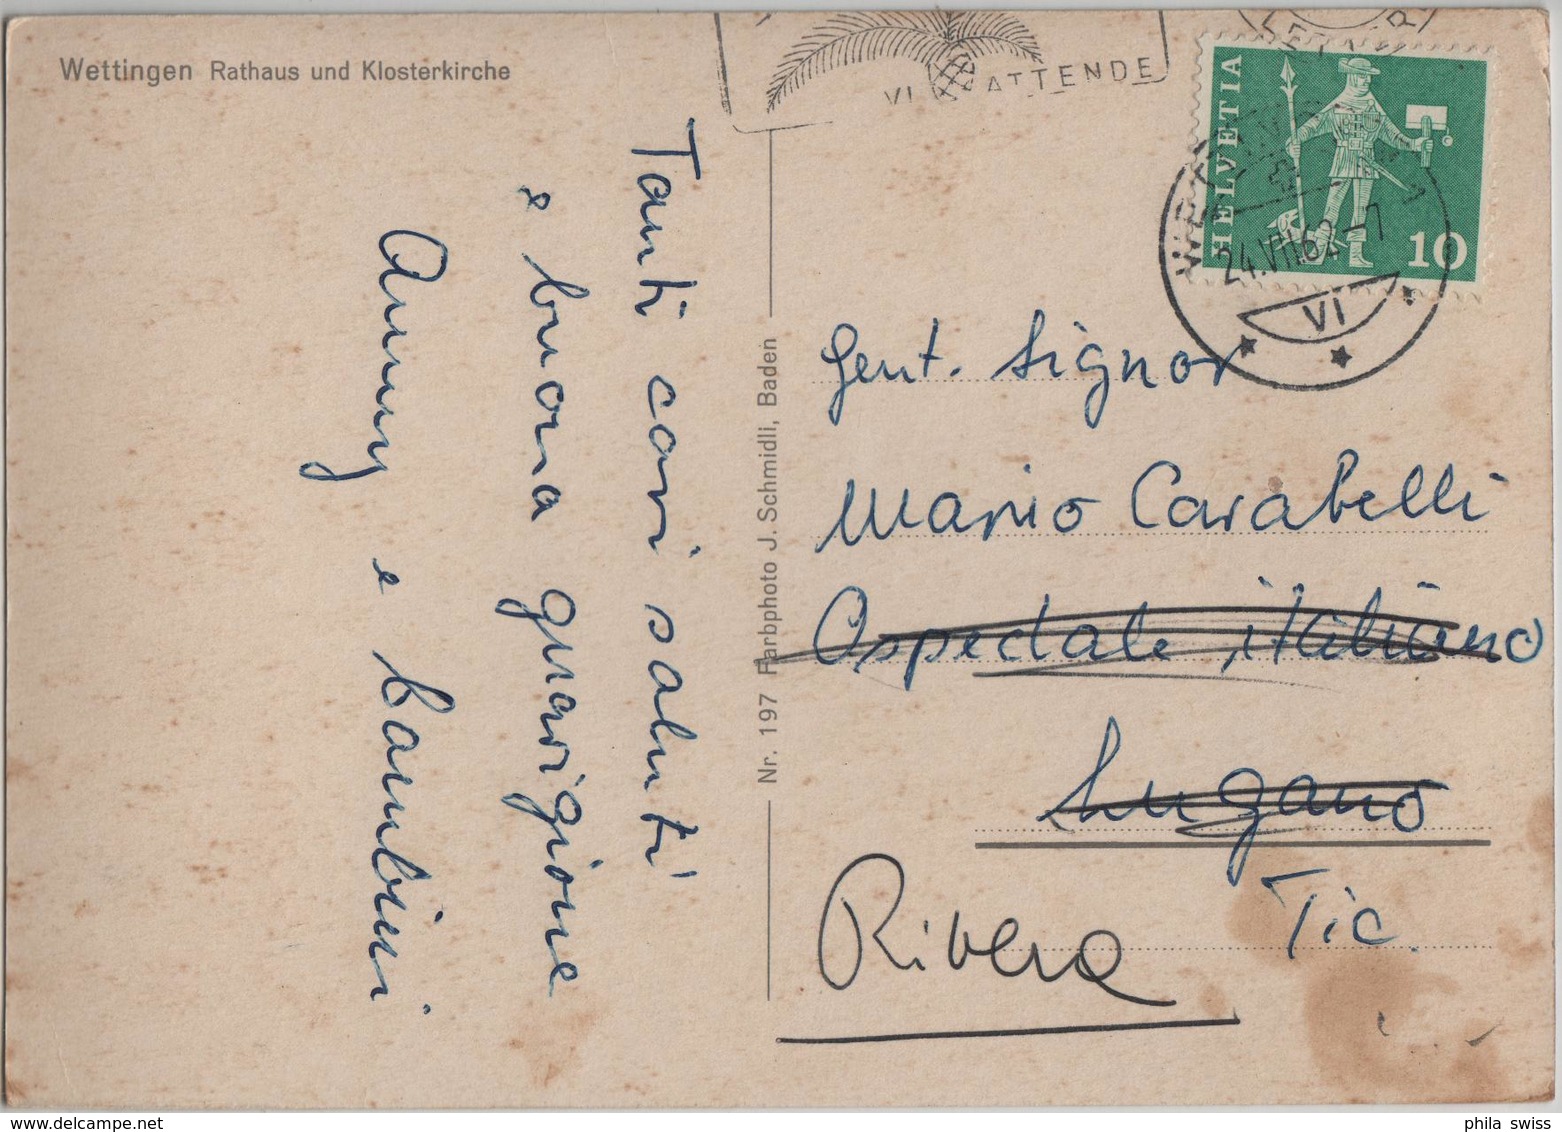 Wettingen Rathaus und Klosterkirche
VI ATTENDE
HELVETIA
10
24.VII.62-7
VI
Tanti cari saluti
e buona guarigione
Anny e bambini
Nr. 197 Farbphoto J. Schmidli, Baden
Gent. Signor
Mario Carabelli
Ospedale italiano
Lugano
Tic.
Rivera
phila swiss